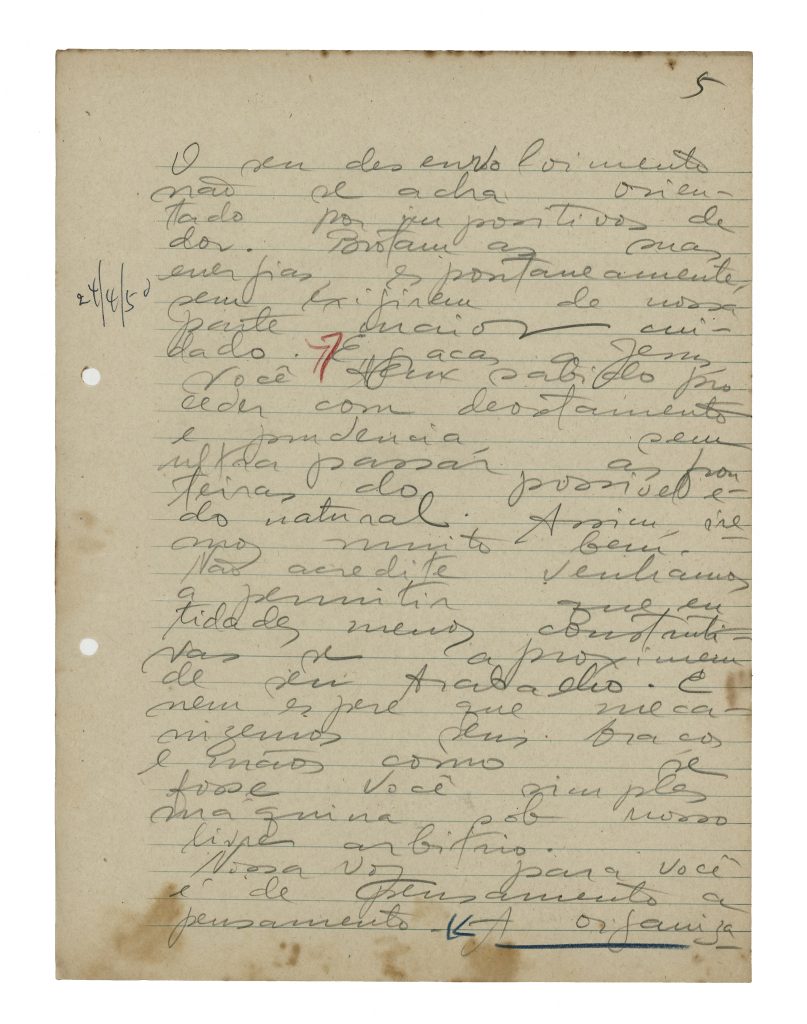 5
O seu desenvolvimento
não se acha orien-
tado por impositivos de
dor. Brotam as suas
energias, espontaneamente,
24/4/50
sem exigirem de nossa
parte maior cui-
dado. E gaças a Jesus
você tem sabido pro
ceder com
e prudencia sem
ultra passar as fron
teiras do possivel e-
do natural. Assim, ire
mos muito bem.
Não acredite venhamos
a permitir que en
tidades menos construti-
vas se aproximem
de seu trabalho. E
nem espere que meca-
nizemos seus bracos
e mãos como se
fosse você simples
máquina sob nosso
livre arbitrio.
Nossa voz para você
é de pensamento a
pensamento - A organiza